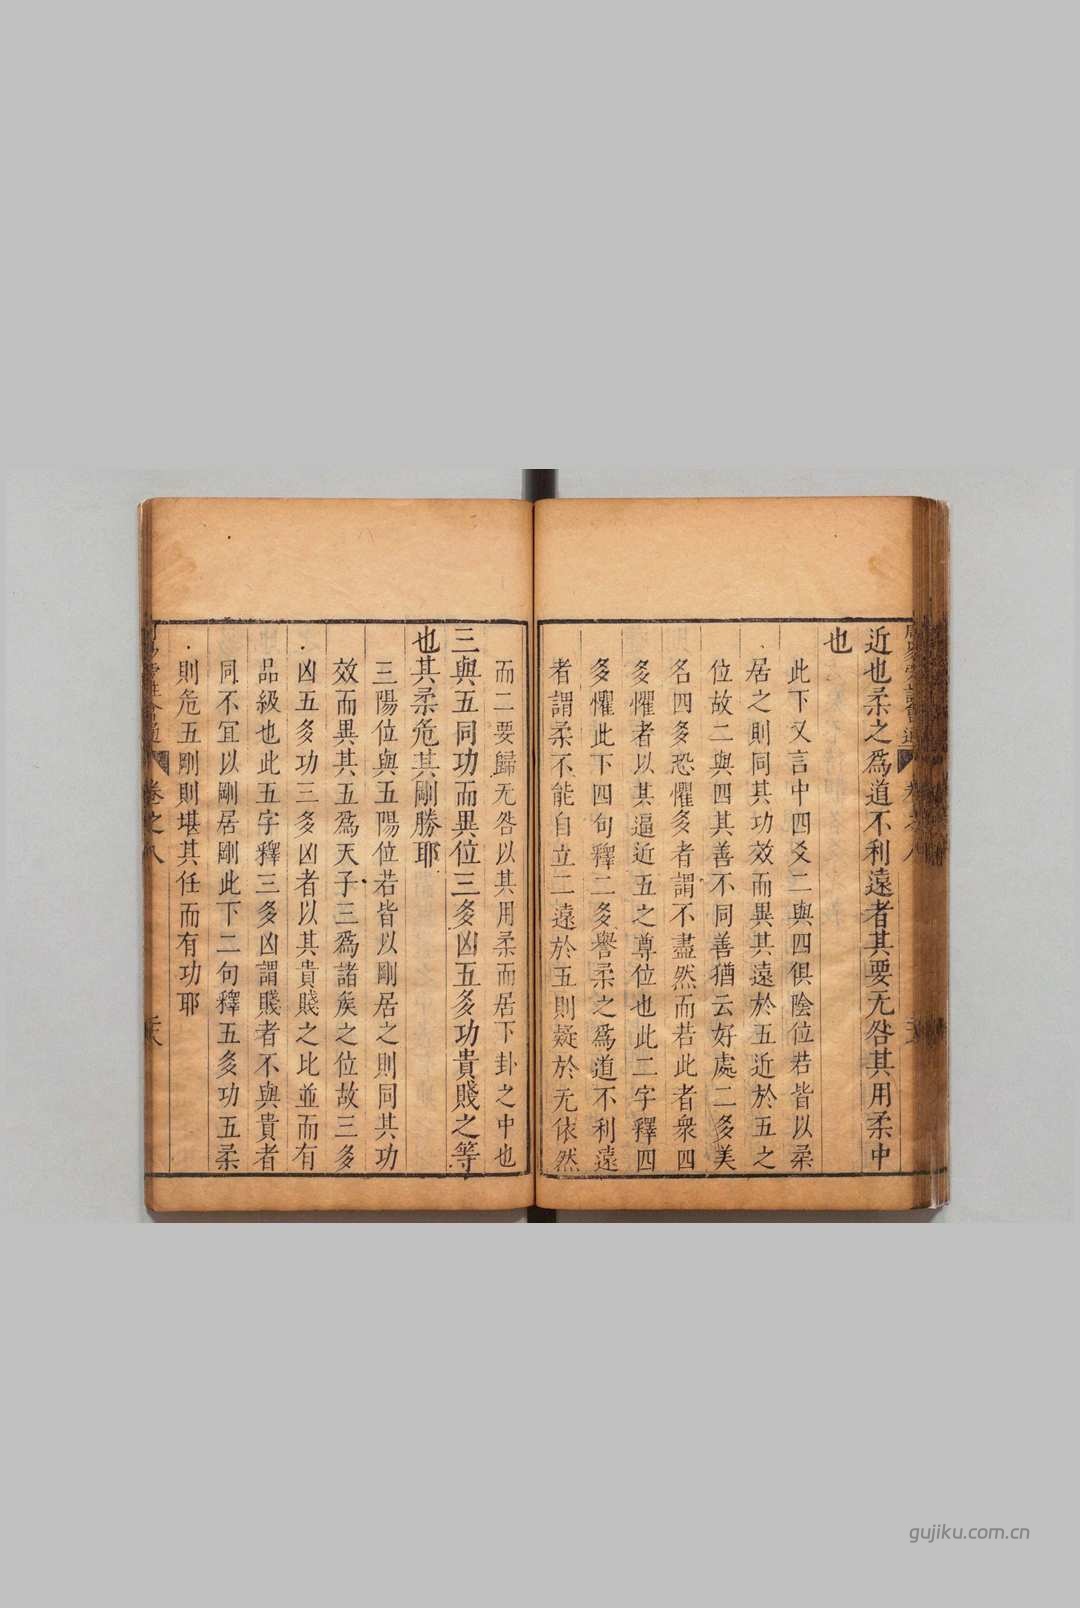 近也柔之爲道不利遠者其要无咎其用柔中
也
此下又言中四爻二與四俱陰位若皆以柔
居之則同其功效而異其遠於五近於五之
位故二與四其善不同善猶云好處二多美
名四多恐懼多者謂不盡然而若此者衆四
多懼者以其逼近五之尊位也此三字釋四
多懼此下四句釋二多譽柔之爲道不利遠
者謂柔不能自立二遠於五則疑於无依然
而二要歸无咎以其用柔而居下卦之中也
三與五同功而異位三多凶五多功貴賤之等
也其柔危其剛勝耶
三陽位與五陽位若皆以剛居之則同其功
效而異其五爲天子三爲諸矦之位故三多
凶五多功三多凶者以其貴賤之比並而有
品級也此五字釋三多凶謂賤者不與貴者
同不宜以剛居剛此下二句釋五多功五柔
則危五剛則堪其任而有功耶
卷之八
gujiku.com.cn